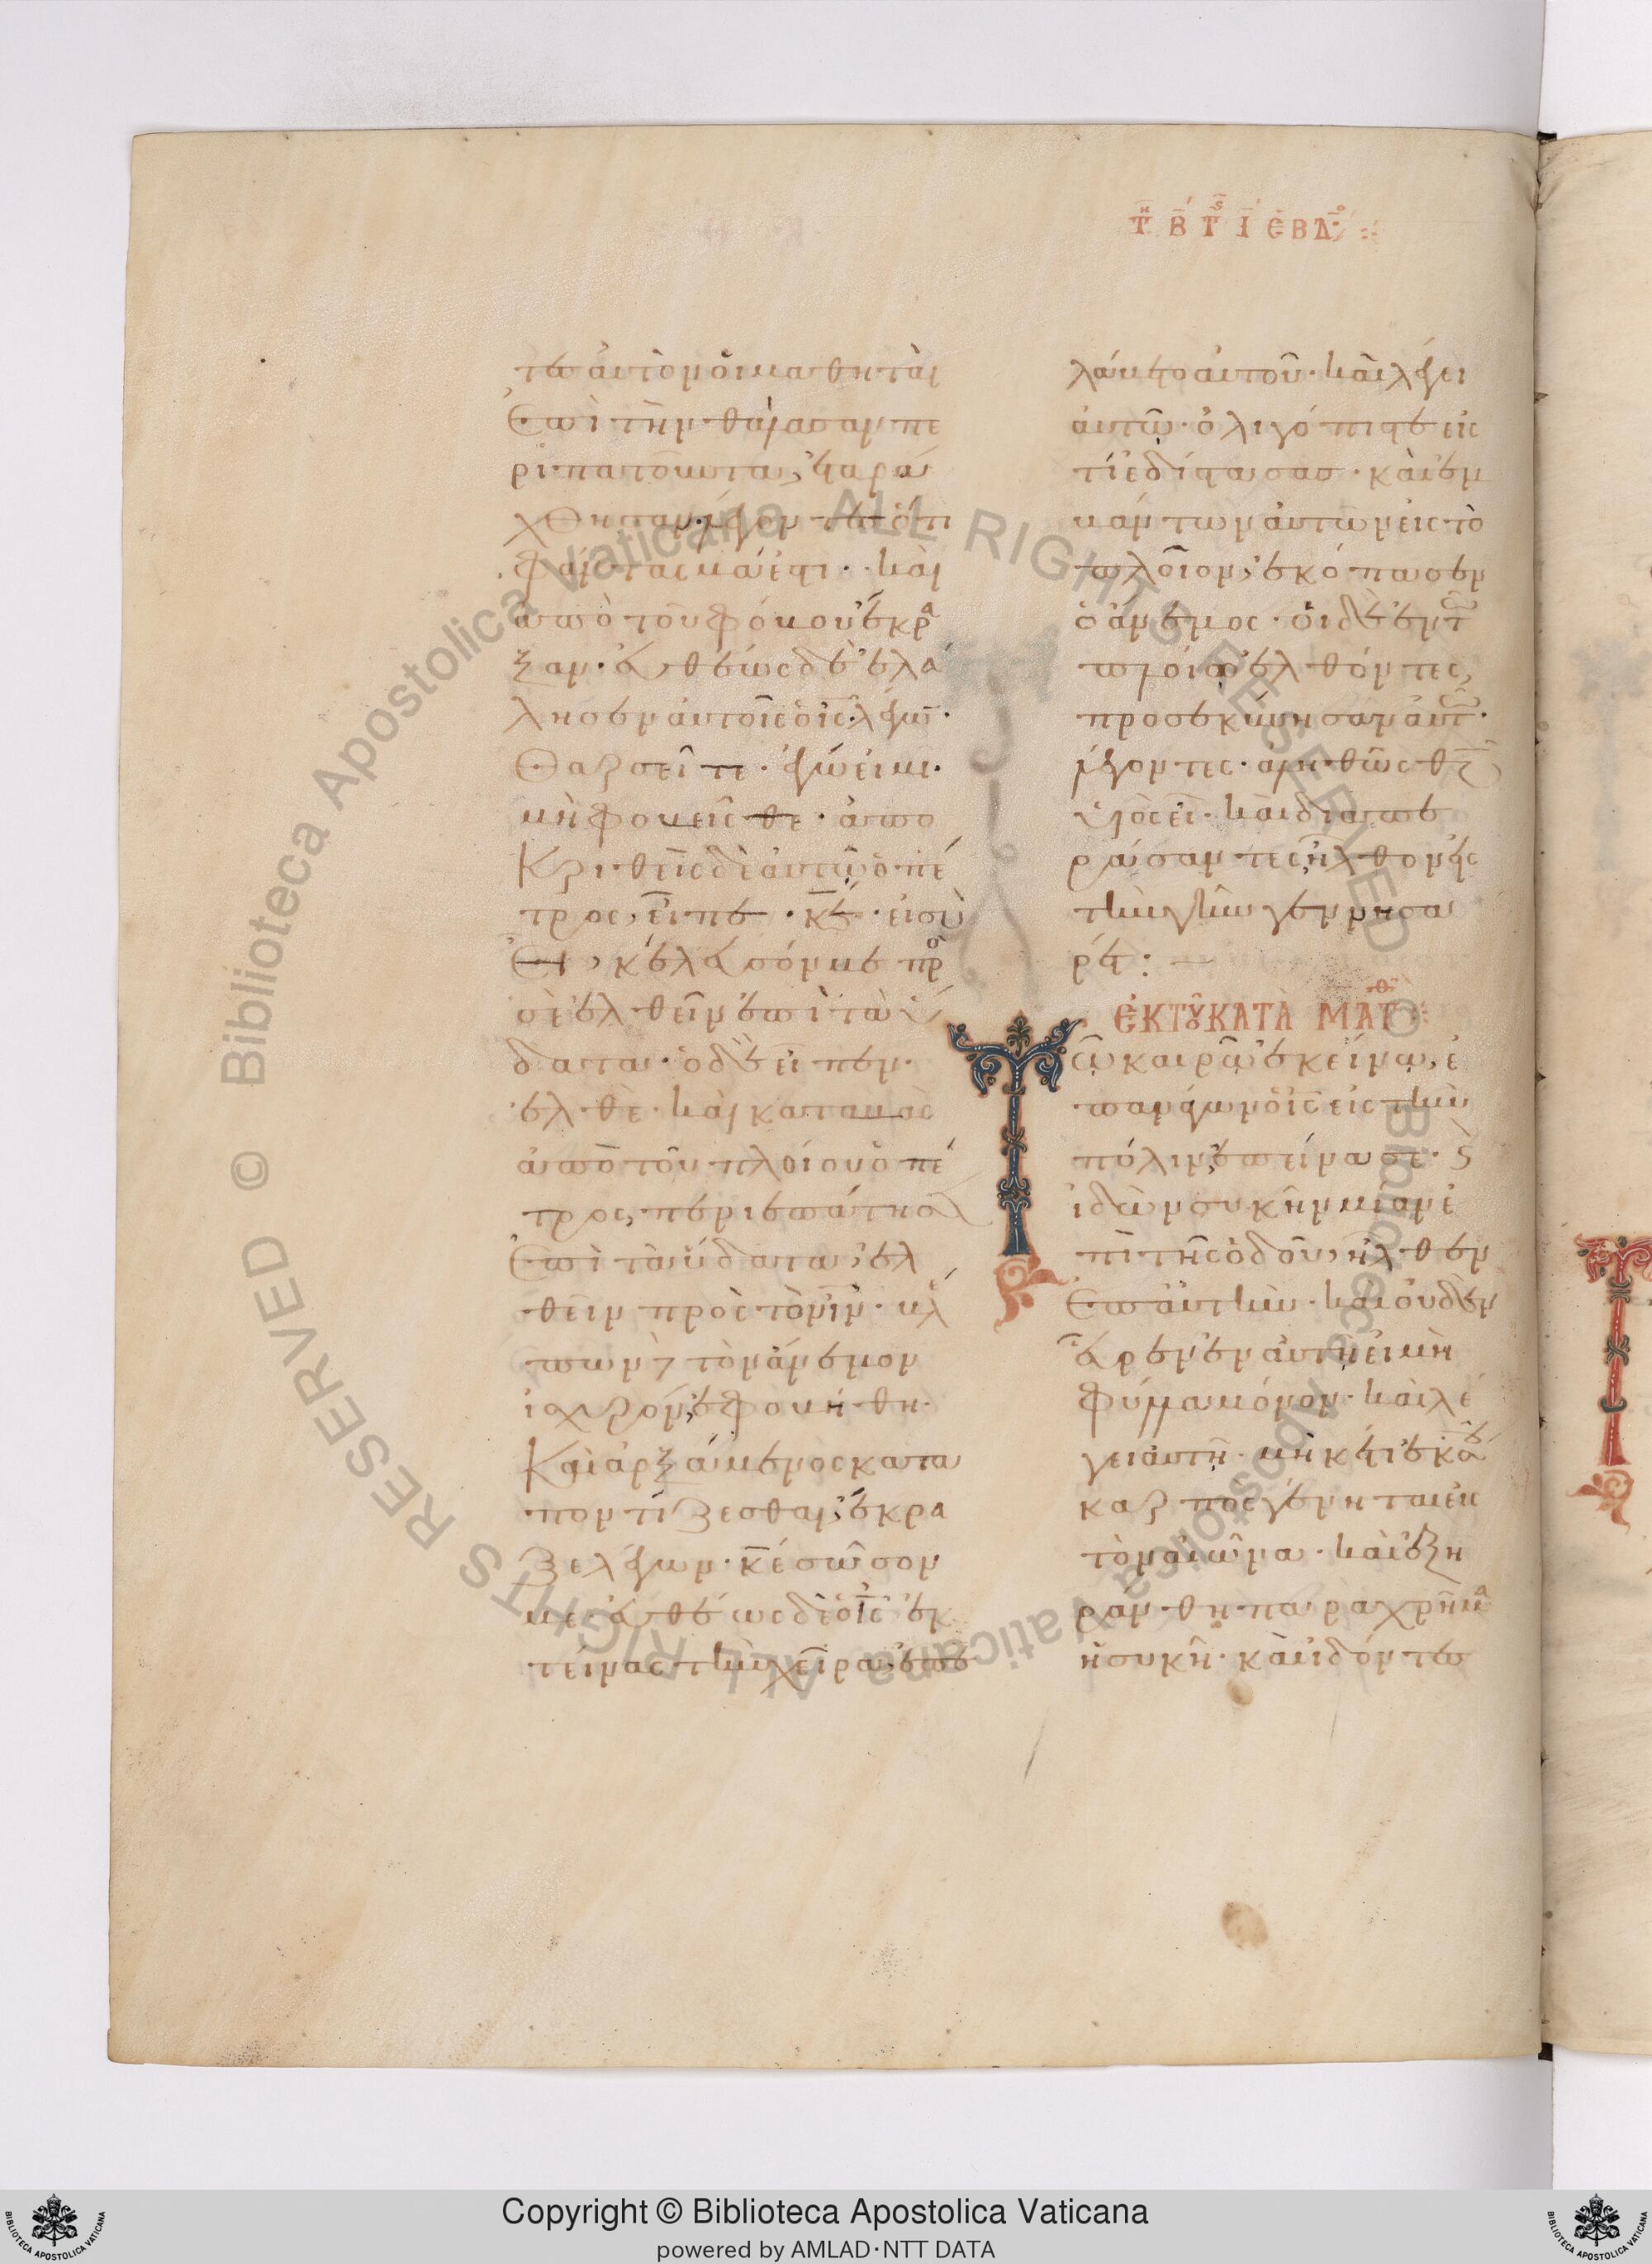 τῇ Β τῆς Ι ἑβδο
τες αὐτὸν οἱ μαθηταὶ
ἐπὶ τὴν θάλασσαν πε
ριπατοῦντα, ἐταρά
χθησαν λέγοντες ὅτι
φάντασμά ἐστι· καὶ
ἀπὸ τοῦ φόβου ἔκρα
ξαν· εὐθέως δὲ ἐλά
λησεν αὐτοῖς ὁ ις λέγων·
θαρσεῖτε· ἐγώ εἰμι·
μὴ φοβεῖσθε· ἀπο
κριθεὶς δὲ αὐτῷ ὁ πέ
τρος, εἶπε· κε· εἰ σὺ
εἶ, κέλευσόν με πρὸ
σὲ ἐλθεῖν ἐπὶ τὰ ὕ
δατα· ὁ δὲ εἶπεν·
ἐλθέ· καὶ καταβὰς
ἀπὸ τοῦ πλοίου ὁ πέ
τρος, περιεπάτησεν
ἐπὶ τὰ ὕδατα, ἐλ
θεῖν πρὸς τὸν ιν· βλέ
πων δὲ τὸν ἄνεμον
ἰσχυρόν, ἐφοβήθη·
καὶ ἀρξάμενος κατα
ποντίζεσθαι, ἔκρα
ξε λέγων· κε σῶσόν
με· εὐθέως δὲ ὁ ις ἐκ
τείνας τὴν χεῖρα, ἐπε
λάβετο αὐτοῦ· καὶ λέγει
αὐτῷ· ὀλιγόπιστε εἰς
τί ἐδίστασας· καὶ ἐμ
βάντων αὐτῶν εἰς τὸ
πλοῖον, ἐκόπασεν
ὁ ἄνεμος· οἱ δὲ ἐν τῷ
πλοίῳ ἐλθόντες,
προσεκύνησαν αὐτῷ·
λέγοντες· ἀληθῶς θυ
υἱὸς εἶ· καὶ διαπε
ράσαντες, ἦλθον εἰς
τὴν γῆν γεννησα
ρέτ:
ἐκ τοῦ κατὰ Ματθ
Τῷ καιρῷ ἐκείνῳ, ἐ
πανάγων ὁ ις εἰς τὴν
πόλιν, ἐπείνασε· καὶ
ἰδὼν συκῆν μίαν ἐ
πὶ τῆς ὁδοῦ, ἦλθεν
ἐπ αὐτὴν· καὶ οὐδὲν
εὗρεν ἐν αὐτῇ εἰ μὴ
φύλλα μόνον· καὶ λέ
γει αὐτῇ· μηκέτι ἐκ σοῦ
καρπὸς γένηται εἰς
τὸν αἰῶνα· καὶ ἐξη
ράνθη παραχρῆμα
ἡ συκῆ· καὶ ἰδόντες
Copyright © Biblioteca Apostolica Vaticana
powered by AMLAD·NTT DATA